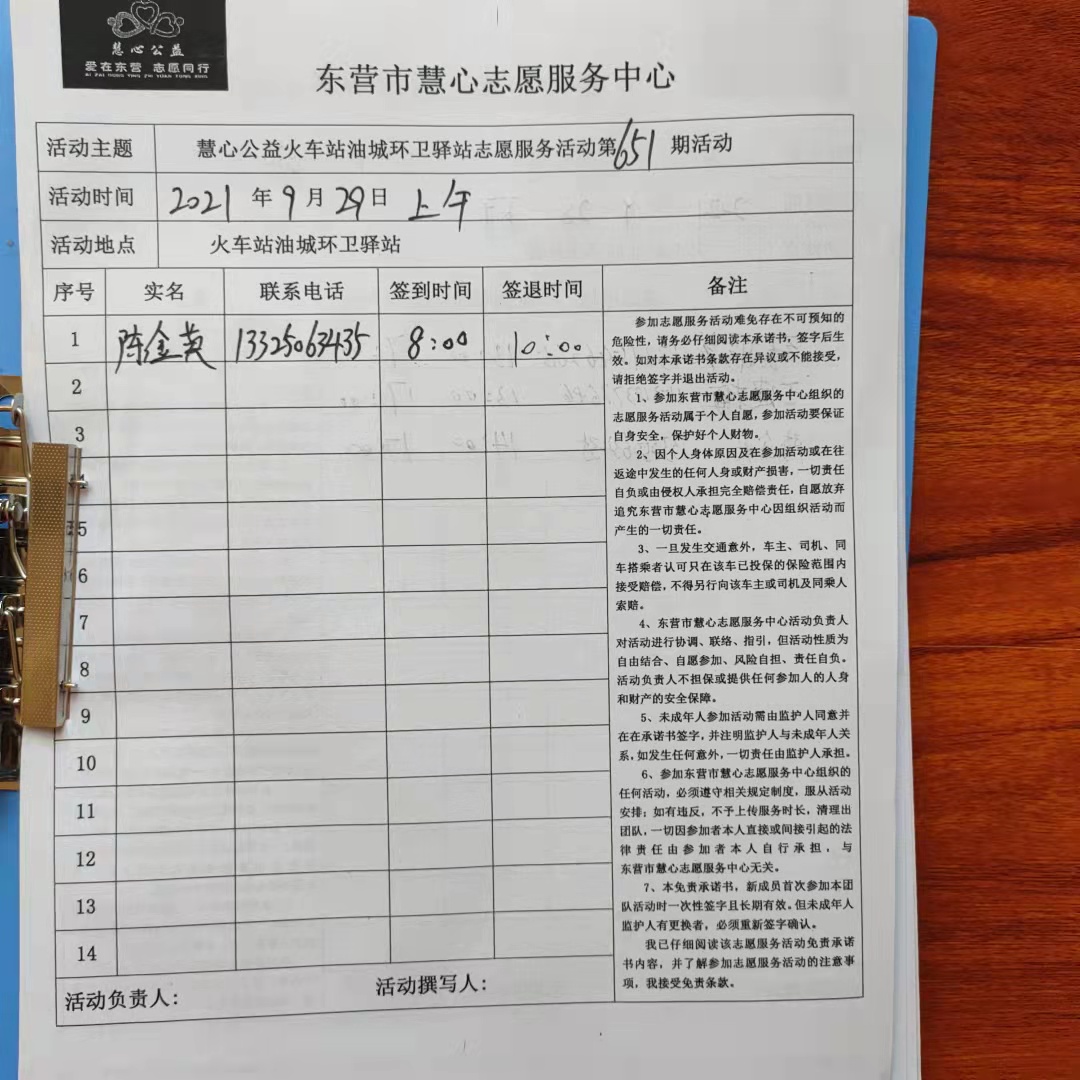 慧心公益
爱在东营 志愿同行
AI ZAI DONG YING ZHI YUAN TONG XING
东营市慧心志愿服务中心
活动主题 慧心公益火车站油城环卫驿站志愿服务活动第651期活动
活动时间 2021年9月29日 上午
活动地点 火车站油城环卫驿站
序号 实名 联系电话 签到时间 签退时间 备注
1 陈金英 13325063435 8:00 10:00
2
3
4
5
6
7
8
9
10
11
12
13
14
参加志愿服务活动难免存在不可预知的
危险性，请务必仔细阅读本承诺书，签字后生
效。如对本承诺书条款存在异议或不能接受，
请拒绝签字并退出活动。
1、参加东营市慧心志愿服务中心组织的
志愿服务活动属于个人自愿，参加活动要保证
自身安全，保护好个人财物。
2、因个人身体原因及在参加活动或在往
返途中发生的任何人身或财产损害，一切责任
自负或由侵权人承担完全赔偿责任，自愿放弃
追究东营市慧心志愿服务中心因组织活动而
产生的一切责任。
3、一旦发生交通意外，车主、司机、同
车搭乘者认可只在该车已投保的保险范围内
接受赔偿，不得另行向该车主或司机及同乘人
索赔。
4、东营市慧心志愿服务中心活动负责人
对活动进行协调、联络、指引，但活动性质为
自由结合、自愿参加、风险自担、责任自负。
活动负责人不担保或提供任何参加人的人身
和财产的安全保障。
5、未成年人参加活动需由监护人同意并
在在承诺书签字，并注明监护人与未成年人关
系，如发生任何意外，一切责任由监护人承担。
6、参加东营市慧心志愿服务中心组织的
任何活动，必须遵守相关规定制度，服从活动
安排；如有违反，不予上传服务时长，清理出
团队，一切因参加者本人直接或间接引起的法
律责任由参加者本人自行承担，与
东营市慧心志愿服务中心无关。
7、本免责承诺书，新成员首次参加本团
队活动时一次性签字且长期有效。但未成年人
监护人有更换者，必须重新签字确认。
我已仔细阅读该志愿服务活动免责承诺
书内容，并了解参加志愿服务活动的注意事
项，我接受免责条款。
活动负责人： 活动撰写人：